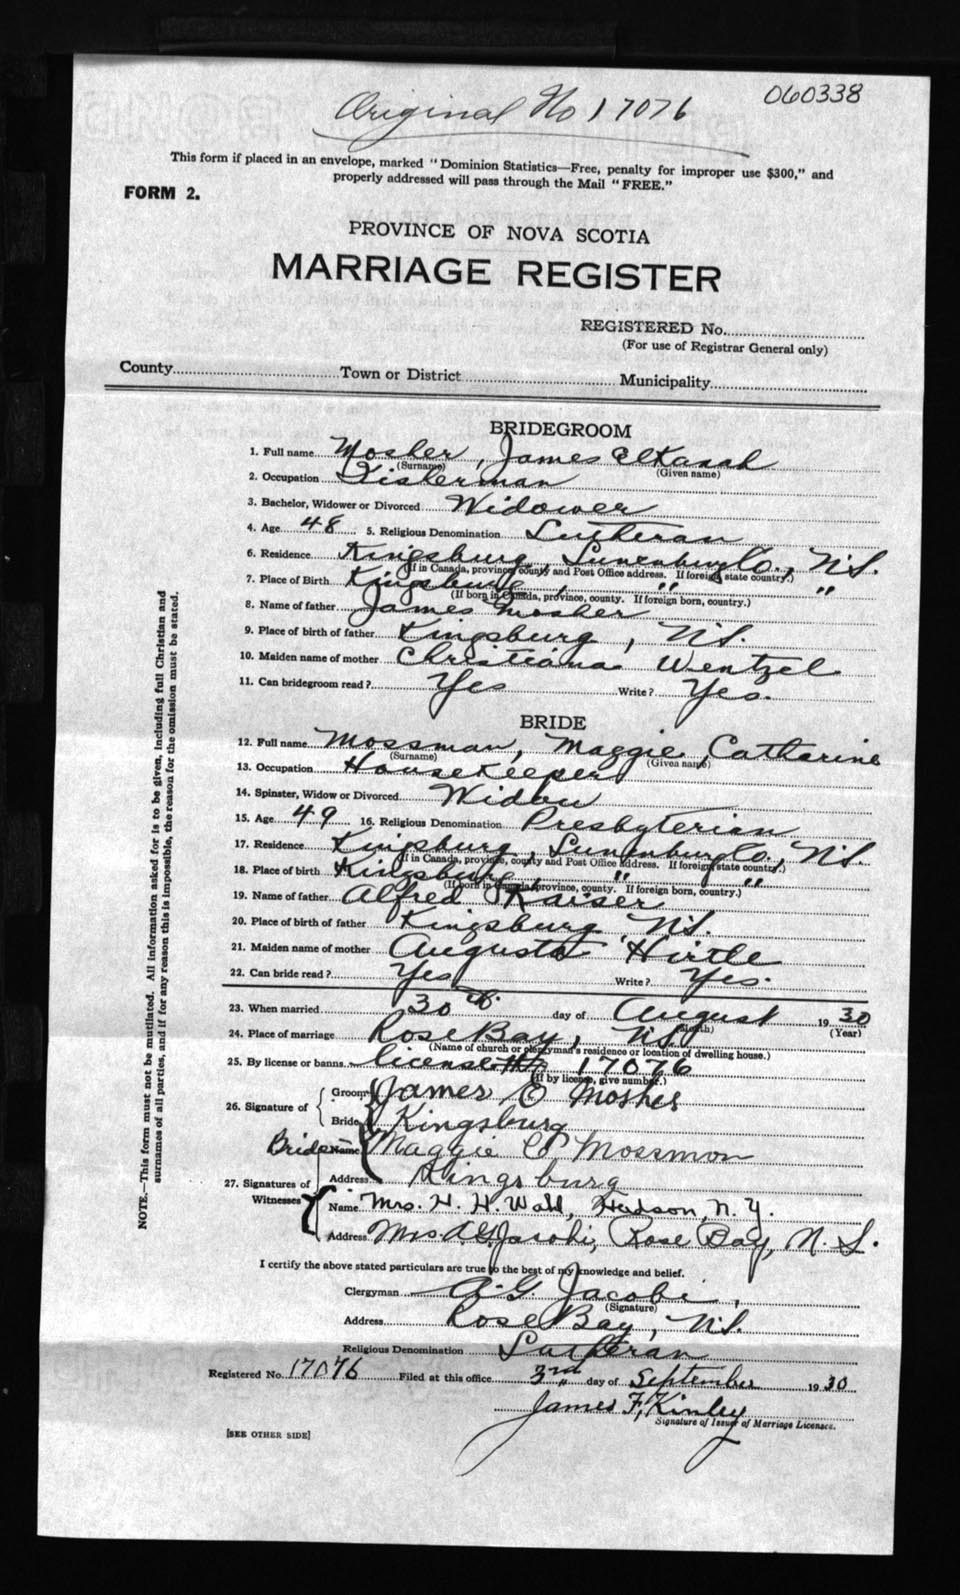 060338
Original No 17076
This form if placed in an envelope, marked "Dominion Statistics—Free, penalty for improper use $300," and
properly addressed will pass through the Mail "FREE."
FORM 2.
PROVINCE OF NOVA SCOTIA
MARRIAGE REGISTER
REGISTERED No.
(For use of Registrar General only)
County Town or District Municipality
BRIDEGROOM
1. Full name Mosher, James Elkanah
(Surname) (Given name)
2. Occupation Fisherman
3. Bachelor, Widower or Divorced Widower
4. Age 48 5. Religious Denomination Lutheran
6. Residence Kingsburg, Lunenburg Co., N.S.
(If in Canada, province, county and Post Office address. If foreign, state country.)
7. Place of Birth Kingsburg " "
(If born in Canada, province, county. If foreign born, country.)
8. Name of father James Mosher
9. Place of birth of father Kingsburg, N.S.
10. Maiden name of mother Christiana Wentzel
11. Can bridegroom read? Yes Write? Yes.
BRIDE
12. Full name Mossman, Maggie Catharine
(Surname) (Given name)
13. Occupation Housekeeper
14. Spinster, Widow or Divorced Widow
15. Age 49 16. Religious Denomination Presbyterian
17. Residence Kingsburg, Lunenburg Co., N.S.
(If in Canada, province, county and Post Office address. If foreign, state country.)
18. Place of birth Kingsburg " "
(If born in Canada, province, county. If foreign born, country.)
19. Name of father Alfred Kaiser
20. Place of birth of father Kingsburg, N.S.
21. Maiden name of mother Augusta Hirtle
22. Can bride read? Yes Write? Yes.
23. When married 30th. day of August 1930
(Month) (Year)
24. Place of marriage Rose Bay, N.S.
(Name of church or clergyman's residence or location of dwelling house.)
25. By license or banns license 17076
(If by license, give number.)
26. Signature of { Groom James E Mosher
Bride Kingsburg
Bride Name Maggie C Mossmon
27. Signatures of Witnesses Address Kingsburg
Name Mrs. H. H. Wald, Hudson, N.Y.
Address Mrs A.G. Jacobi, Rose Bay, N.S.
I certify the above stated particulars are true to the best of my knowledge and belief.
Clergyman A. G. Jacobi,
(Signature)
Address Rose Bay, N.S.
Religious Denomination Lutheran
Registered No. 17076 Filed at this office 3rd day of September 1930
James F. Kinley
Signature of Issuer of Marriage Licenses.
[SEE OTHER SIDE]
NOTE.—This form must not be mutilated. All information asked for is to be given, including full Christian and
surnames of all parties, and if for any reason this is impossible, the reason for the omission must be stated.